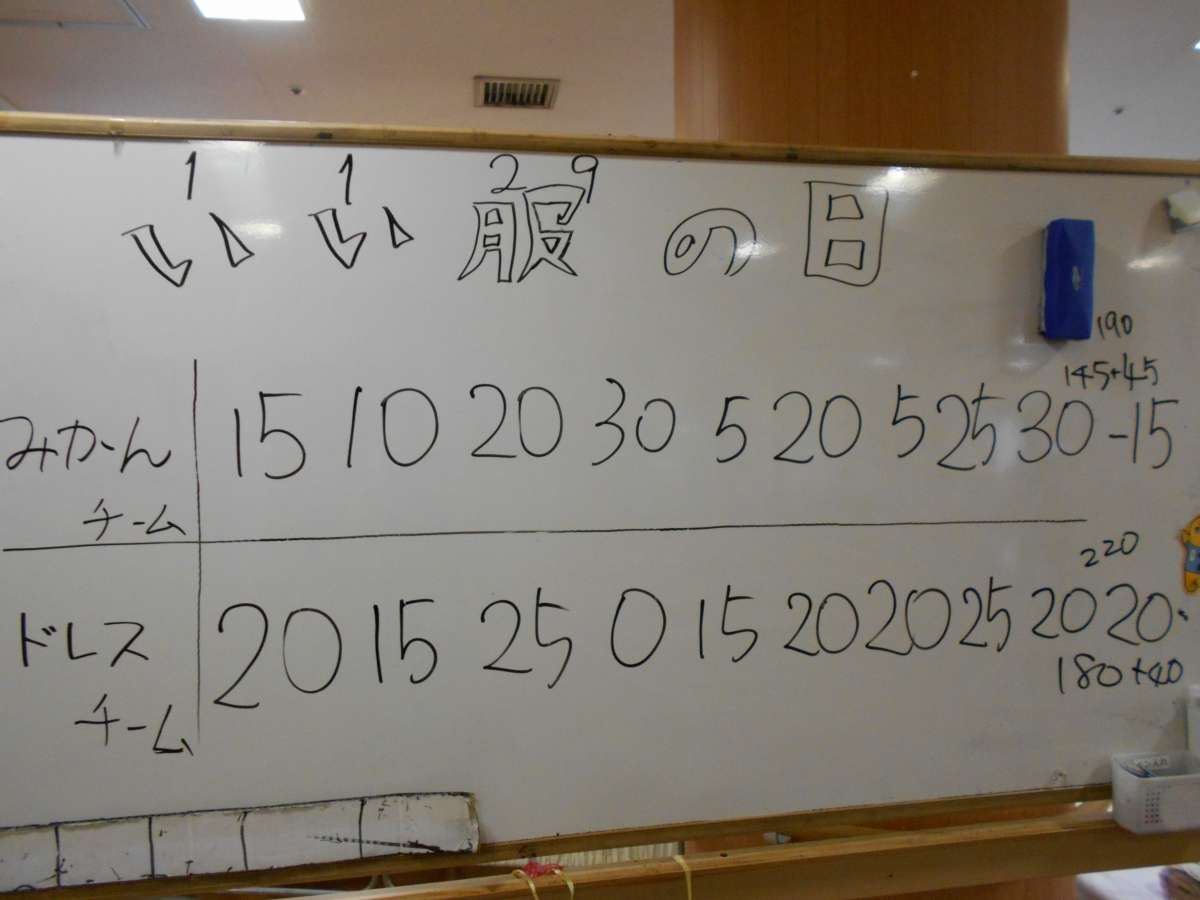 1 1 29
いい服の日
190
145+45
みかん 15 10 20 30 5 20 5 25 30 -15
チーム
220
ドレス 20 15 25 0 15 20 20 25 20 20
チーム 180+40